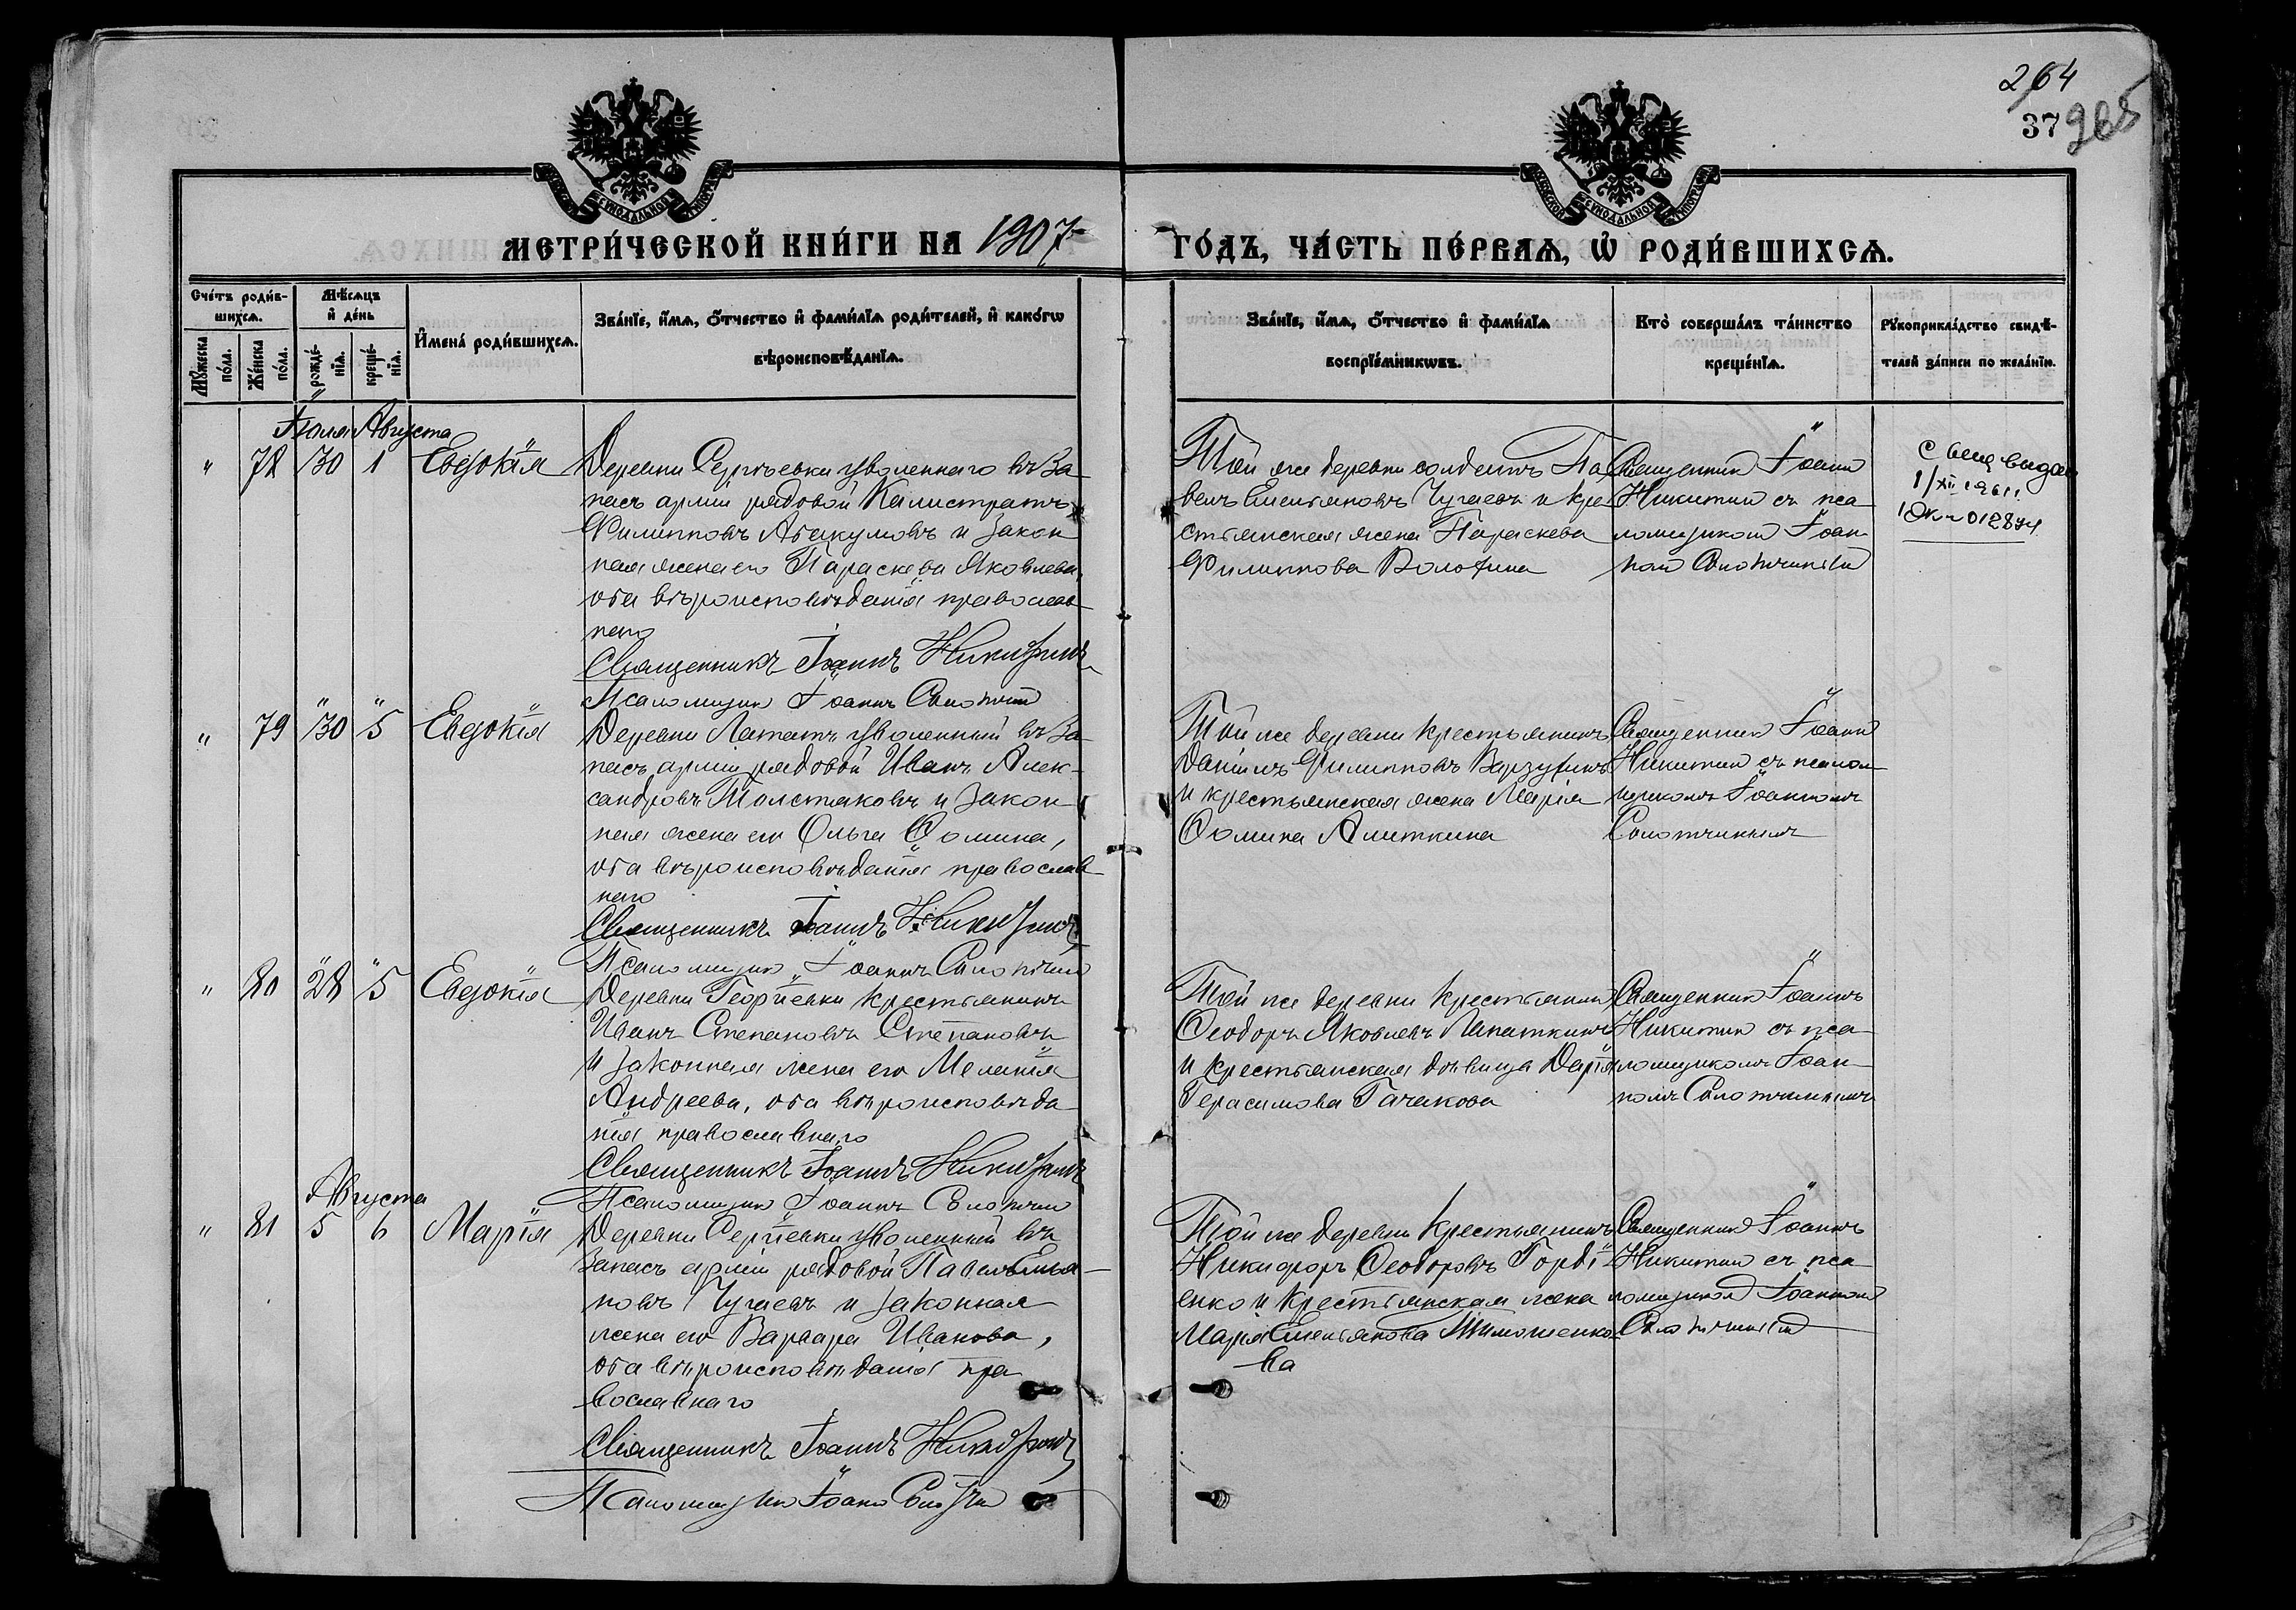 264
37 265
МЕТРИ́ЧЕСКОЙ КНИ́ГИ НА 1907
ГО́ДЪ, ЧА́СТЬ ПЕ́РВАѦ, Ѡ҆ РОДИ́ВШИХСѦ.
Сче́тъ роди́в-
шихсѧ.
Мꙋ́жеска по́ла.
Же́нска по́ла.
Мѣ́сѧцъ
и҆ де́нь
рожде́-
нїѧ.
креще́-
нїѧ.
И҆мена̀ роди́вшихсѧ.
Зва́нїе, и҆́мѧ, ѻ҆́тчество и҆ фами́лїѧ роди́телей, и҆ како́гѡ
вѣроисповѣ́данїѧ.
Зва́нїе, и҆́мѧ, ѻ҆́тчество и҆ фами́лїѧ
воспрїе́мникѡвъ.
Кто̀ соверша́лъ та́инство
креще́нїѧ.
Рꙋкоприкла́дство свидѣ́-
телей за́писи по жела́нїю.
Іюля Августа
" 78 30 1 Евдокія
Деревни Сергѣевки уволеннаго въ за-
пасъ арміи рядовой Калистратъ
Филипповъ Абакумовъ и закон
ная жена его Параскева Яковлева,
оба вѣроисповѣданія православ-
наго
Священникъ Іоаннъ Никитинъ
Псаломщикъ Іоаннъ
Той же деревни солдатъ Па
велъ Емельяновъ Чугаевъ и кре
стьянская жена Параскева
Филиппова
Священникъ Іоаннъ
Никитинъ съ пса
ломщикомъ Іоан
номъ
Свид выдано
1/XII 1961
" 79 " 30 " 5 Евдокія
Деревни Лататъ уволенный въ за-
пасъ арміи рядовой Иванъ Алек-
сандровъ Толстиковъ и закон
ная жена его Ольга Ѳомина,
оба вѣроисповѣданія православ
наго
Священникъ Іоаннъ Никитинъ
Псаломщикъ Іоаннъ
Той же деревни крестьянинъ
Даніилъ Филипповъ Варзугинъ
и крестьянская жена Марія
Ѳомина Алиткина
Священникъ Іоаннъ
Никитинъ съ псалом
щикомъ Іоанномъ
" 80 " 28 " 5 Евдокія
Деревни Георгіевки крестьянинъ
Иванъ Степановъ Степановъ
и законная жена его Меланія
Андреева, оба вѣроисповѣда
нія православнаго
Священникъ Іоаннъ Никитинъ
Псаломщикъ Іоаннъ
Той же деревни крестьянинъ
Ѳеодоръ Яковлевъ Лапаткинъ
и крестьянская дѣвица Дарія
Герасимова Гачакова
Священникъ Іоаннъ
Никитинъ съ пса
ломщикомъ Іоан-
номъ
Августа
" 81 5 6 Марія
Деревни Сергіевки уволенный въ
запасъ арміи рядовой Павелъ Емелья-
новъ Чугаевъ и законная
жена его Варвара Иванова,
оба вѣроисповѣданія пра
вославнаго
Священникъ Іоаннъ Никитинъ
Псаломщикъ Іоаннъ
Той же деревни крестьянинъ
Никифоръ Ѳеодоровъ Горді-
енко и крестьянская жена
Марія Емельянова Тимошенко
ва
Священникъ Іоаннъ
Никитинъ съ пса
ломщикомъ Іоанномъ